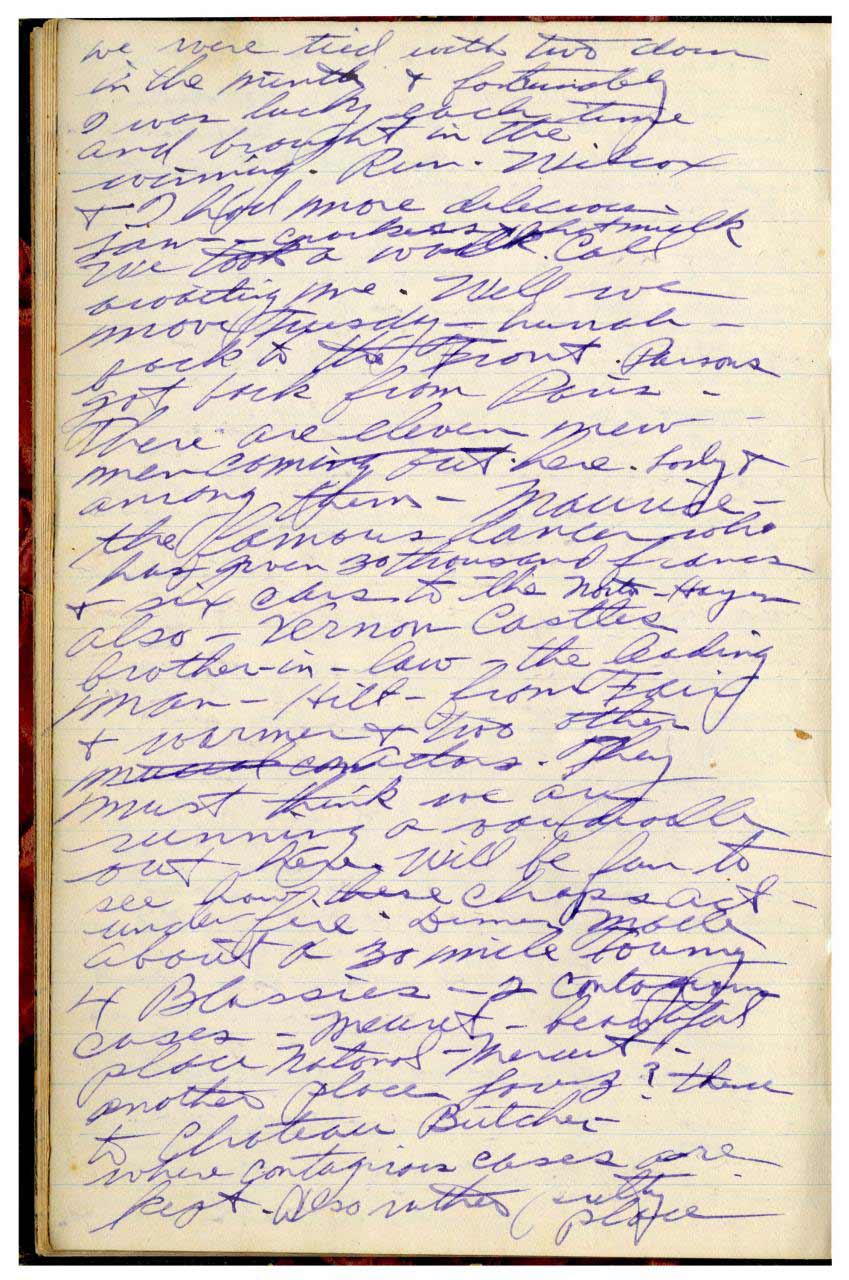 we were tied with two down
in the ninth & fortunately
I was lucky each time
and brought in the
winning. Run. Wilcox
& I had more delicious
jam - crackers & hot milk
We took a walk. Call
awaiting me. Well we
move Tuesdy - hurrah -
back to the Front. Parsons
got back from Paris -
There are eleven new
men coming out here.
among them - Maurice -
the famous dancer who
has given 30 thousand francs
& six cars to the Norton-Harjes
also - Vernon Castles
brother-in-law - the leading
man - Hill - from Fair
& warmer & two other
actors. They
must think we are
running a vaudville
out here. Will be fun to
see how these chaps act -
under fire. Dinner made
about a 30 mile
4 Blessies - 2 contagious
cases - - beautiful
place Natoral -
another place ? then
to Chateau Butcher
where contagious cases are
kept. Also rather pretty
place